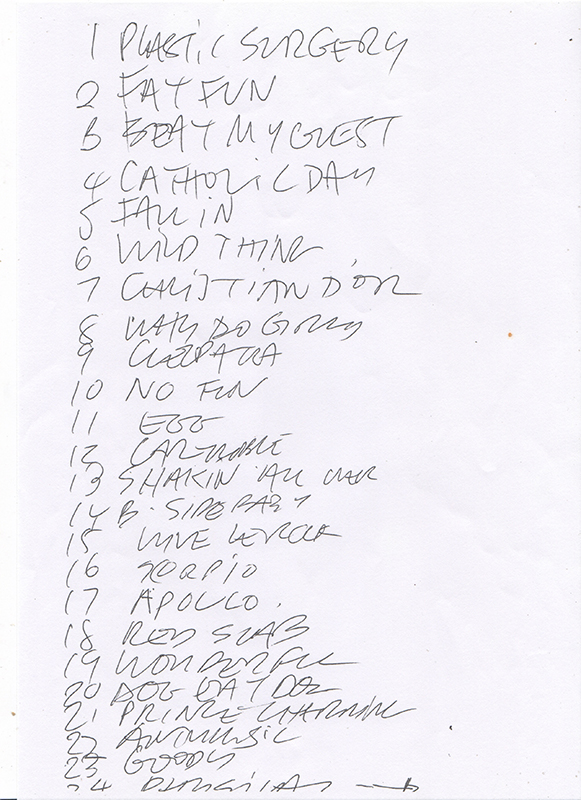 1 PLASTIC SURGERY
2 FAT FUN
3 BEAT MY GUEST
4 CATHOLIC DAY
5 FALL IN
6 WILD THING
7 CHRISTIAN D'OR
8 WHY DO GIRLS
9 CLEOPATRA
10 NO FUN
11 EGG
12 CARTROUBLE
13 SHAKIN ALL OVER
14 B. SIDE BABY
15
16 SCORPIO
17 APOLLO.
18 RED SCAB
19 WONDERFUL
20 DOG EAT DOG
21 PRINCE CHARMING
22 ANTMUSIC
23 GOODY
24 PHYSICAL